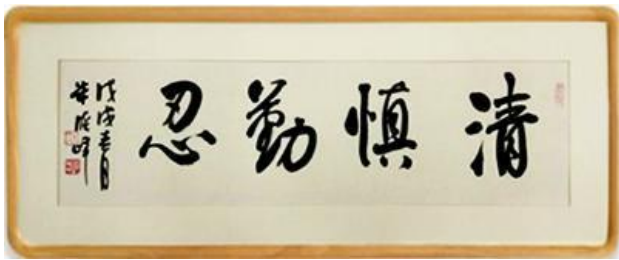 清慎勤忍
戊戌春月